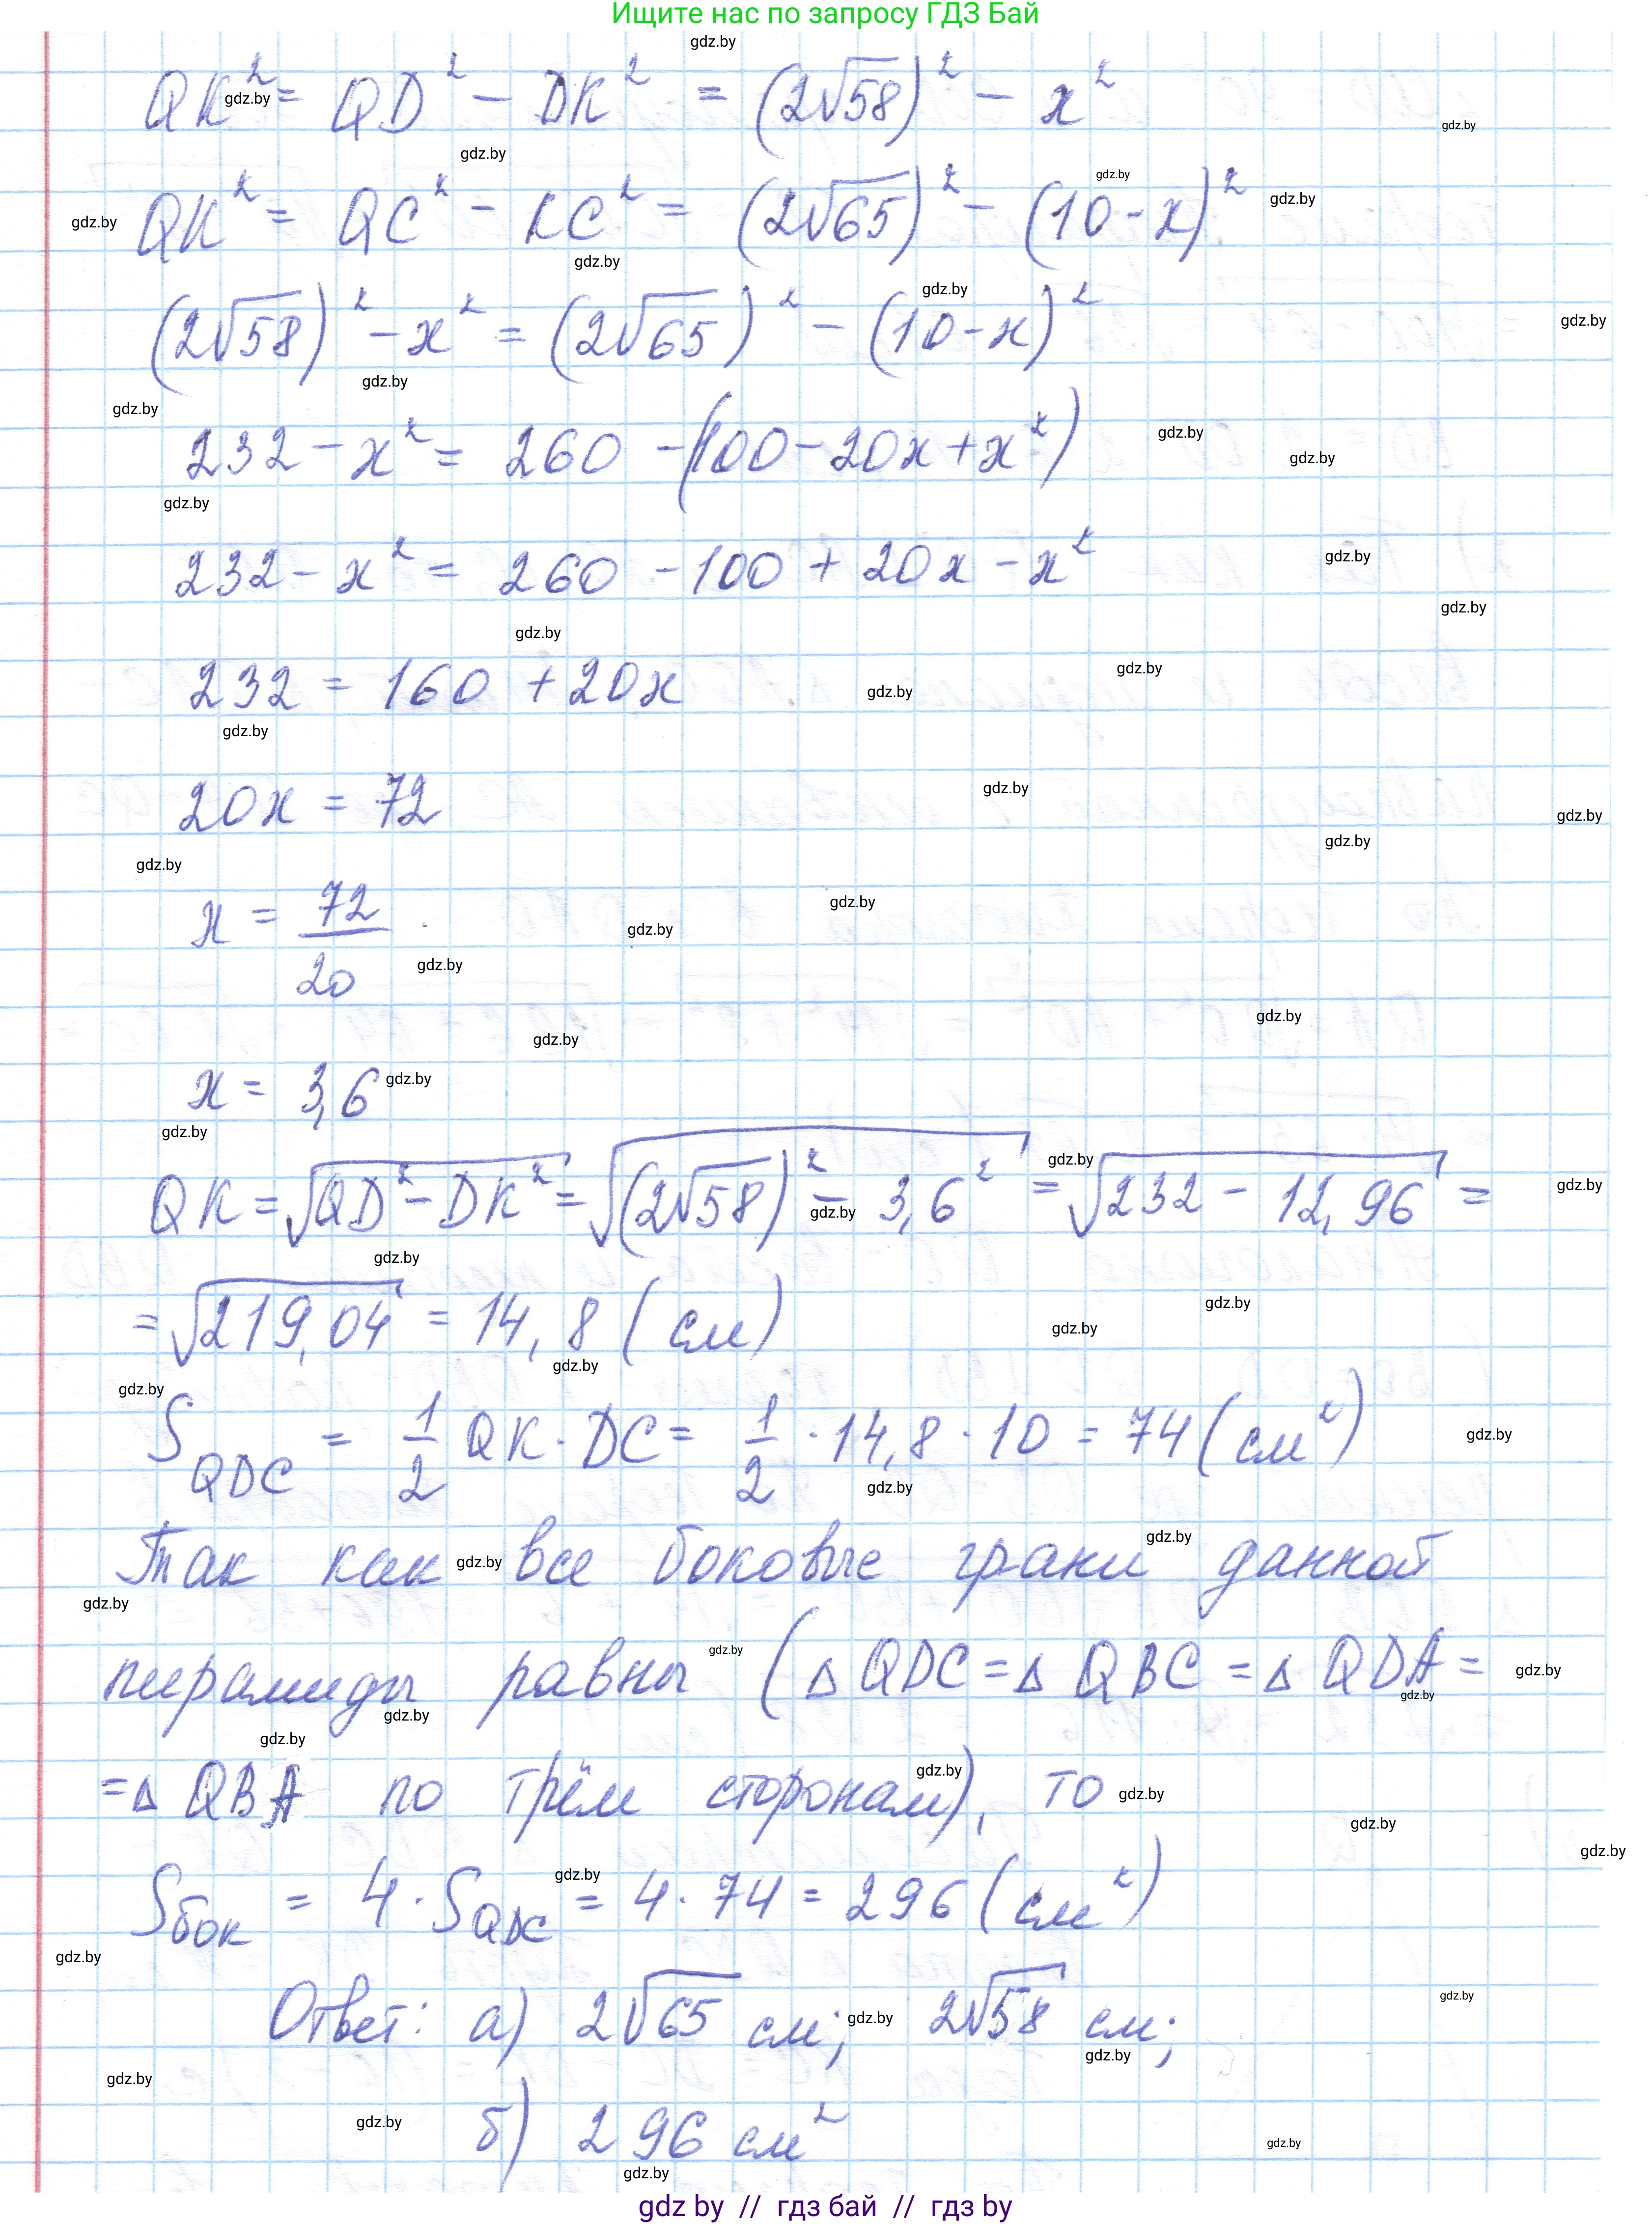 Ищите нас по запросу ГДЗ Бай
gdz.by
QK² = QD² - DK² = (2√58)² - x²
QK² = QC² - KC² = (2√65)² - (10-x)²
(2√58)² - x² = (2√65)² - (10-x)²
232 - x² = 260 - (100 - 20x + x²)
232 - x² = 260 - 100 + 20x - x²
232 = 160 + 20x
20x = 72
x = 72/20
x = 3,6
QK = √QD² - DK² = √(2√58)² - 3,6² = √232 - 12,96 =
= √219,04 = 14,8 (см)
S QDC = 1/2 QK · DC = 1/2 · 14,8 · 10 = 74 (см²)
Так как все боковые грани данной
пирамиды равны (△ QDC = △ QBC = △ QDA =
= △ QBA по трём сторонам), то
Sбок = 4 · S QDC = 4 · 74 = 296 (см²)
Ответ: а) 2√65 см; 2√58 см;
б) 296 см²
gdz by // гдз бай // гдз by